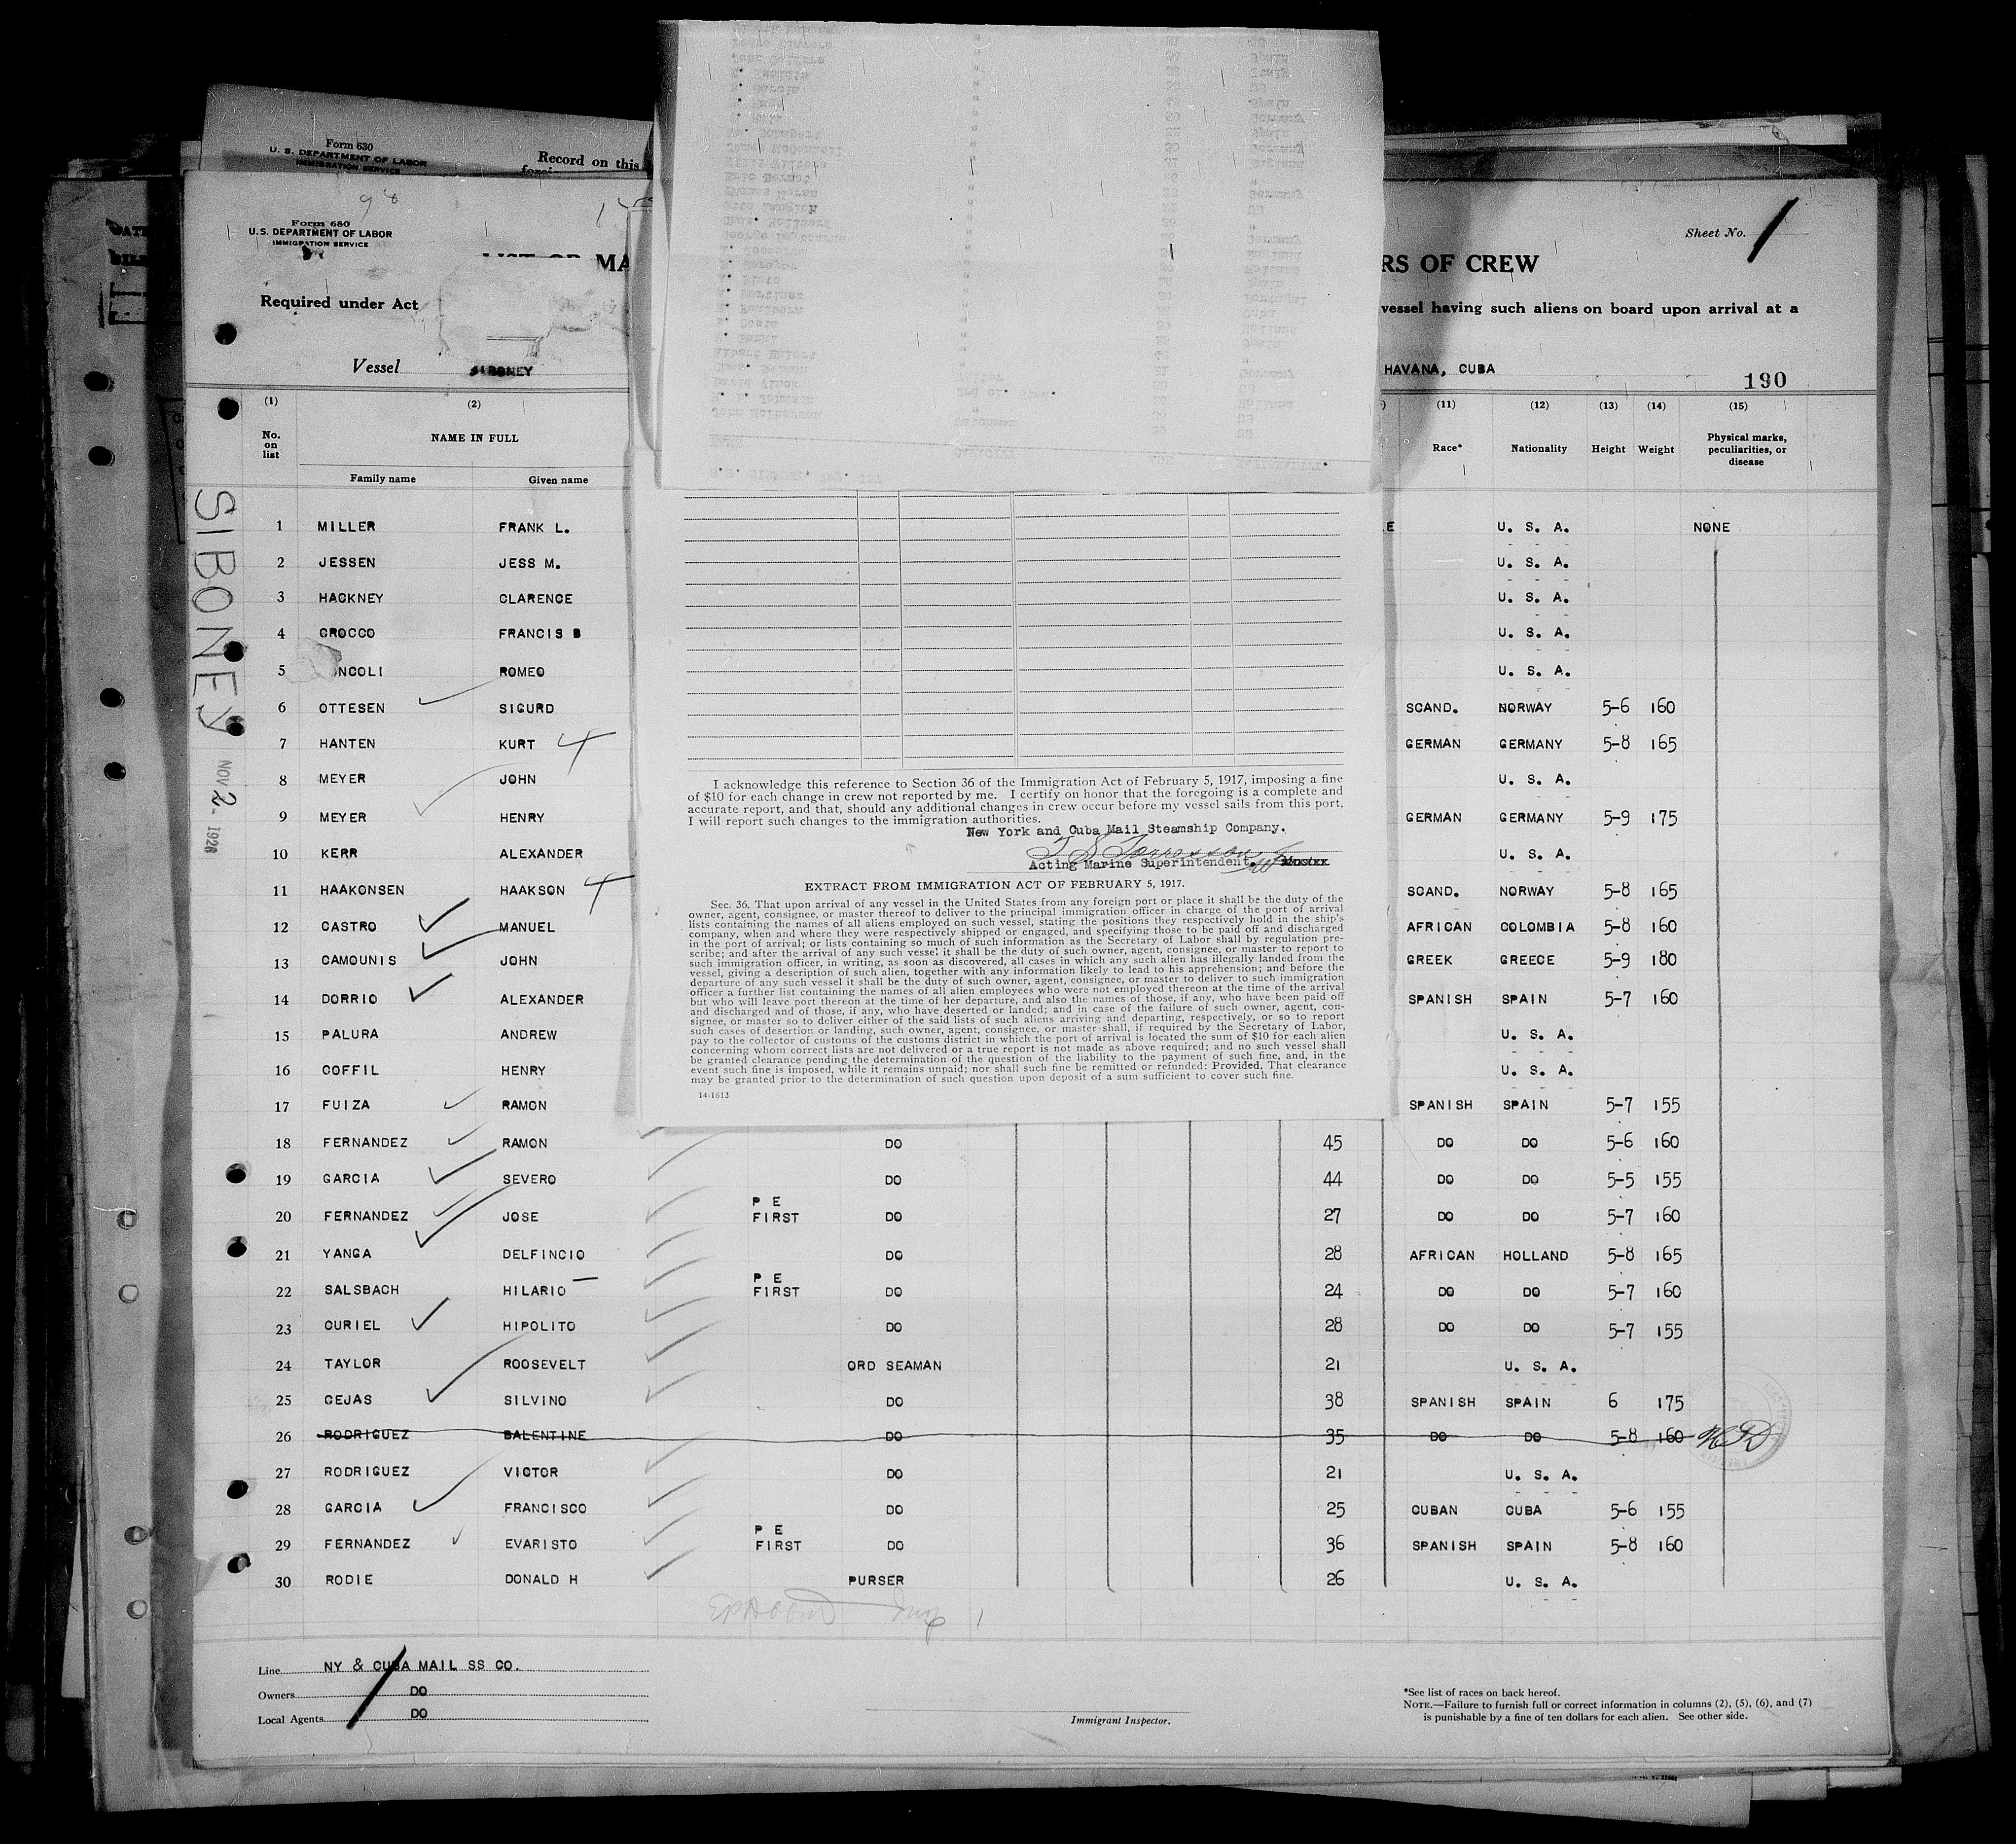 Form 630
U. S. DEPARTMENT OF LABOR
IMMIGRATION SERVICE
Record on this
Form 680
U.S. DEPARTMENT OF LABOR
IMMIGRATION SERVICE
Sheet No. 1
MA
RS OF CREW
Required under Act
vessel having such aliens on board upon arrival at a
Vessel SIBONEY
HAVANA, CUBA
190
(1) (2) (11) (12) (13) (14) (15)
No. on list NAME IN FULL Race* Nationality Height Weight Physical marks, peculiarities, or disease
Family name Given name
SIBONEY
NOV 2 - 1926
1 MILLER FRANK L. U. S. A. NONE
2 JESSEN JESS M. U. S. A.
3 HACKNEY CLARENCE U. S. A.
4 CROCCO FRANCIS B U. S. A.
5 NCOLI ROMEO U. S. A.
6 OTTESEN SIGURD SCAND. NORWAY 5-6 160
7 HANTEN KURT GERMAN GERMANY 5-8 165
8 MEYER JOHN U. S. A.
9 MEYER HENRY GERMAN GERMANY 5-9 175
10 KERR ALEXANDER U. S. A.
11 HAAKONSEN HAAKSON SCAND. NORWAY 5-8 165
12 CASTRO MANUEL AFRICAN COLOMBIA 5-8 160
13 CAMOUNIS JOHN GREEK GREECE 5-9 180
14 DORRIO ALEXANDER SPANISH SPAIN 5-7 160
15 PALURA ANDREW U. S. A.
16 COFFIL HENRY U. S. A.
17 FUIZA RAMON SPANISH SPAIN 5-7 155
18 FERNANDEZ RAMON DO 45 DO DO 5-6 160
19 GARCIA SEVERO DO 44 DO DO 5-5 155
20 FERNANDEZ JOSE P E FIRST DO 27 DO DO 5-7 160
21 YANGA DELFINCIO DO 28 AFRICAN HOLLAND 5-8 165
22 SALSBACH HILARIO P E FIRST DO 24 DO DO 5-7 160
23 CURIEL HIPOLITO DO 28 DO DO 5-7 155
24 TAYLOR ROOSEVELT ORD SEAMAN 21 U. S. A.
25 CEJAS SILVINO DO 38 SPANISH SPAIN 6 175
26 RODRIGUEZ BALENTINE DO 35 DO DO 5-8 160
27 RODRIGUEZ VICTOR DO 21 U. S. A.
28 GARCIA FRANCISCO DO 25 CUBAN CUBA 5-6 155
29 FERNANDEZ EVARISTO P E FIRST DO 36 SPANISH SPAIN 5-8 160
30 RODIE DONALD H PURSER 26 U. S. A.
I acknowledge this reference to Section 36 of the Immigration Act of February 5, 1917, imposing a fine
of $10 for each change in crew not reported by me. I certify on honor that the foregoing is a complete and
accurate report, and that, should any additional changes in crew occur before my vessel sails from this port,
I will report such changes to the immigration authorities.
New York and Cuba Mail Steamship Company.
Acting Marine Superintendent.
EXTRACT FROM IMMIGRATION ACT OF FEBRUARY 5, 1917.
Sec. 36. That upon arrival of any vessel in the United States from any foreign port or place it shall be the duty of the
owner, agent, consignee, or master thereof to deliver to the principal immigration officer in charge of the port of arrival
lists containing the names of all aliens employed on such vessel, stating the positions they respectively hold in the ship's
company, when and where they were respectively shipped or engaged, and specifying those to be paid off and discharged
in the port of arrival; or lists containing so much of such information as the Secretary of Labor shall by regulation pre-
scribe; and after the arrival of any such vessel it shall be the duty of such owner, agent, consignee, or master to report to
such immigration officer, in writing, as soon as discovered, all cases in which any such alien has illegally landed from the
vessel, giving a description of such alien, together with any information likely to lead to his apprehension; and before the
departure of any such vessel it shall be the duty of such owner, agent, consignee, or master to deliver to such immigration
officer a further list containing the names of all alien employees who were not employed thereon at the time of the arrival
but who will leave port thereon at the time of her departure, and also the names of those, if any, who have been paid off
and discharged and of those, if any, who have deserted or landed; and in case of the failure of such owner, agent, con-
signee, or master so to deliver either of the said lists of such aliens arriving and departing, respectively, or so to report
such cases of desertion or landing, such owner, agent, consignee, or master shall, if required by the Secretary of Labor,
pay to the collector of customs of the customs district in which the port of arrival is located the sum of $10 for each alien
concerning whom correct lists are not delivered or a true report is not made as above required; and no such vessel shall
be granted clearance pending the determination of the question of the liability to the payment of such fine, and, in the
event such fine is imposed, while it remains unpaid; nor shall such fine be remitted or refunded: Provided, That clearance
may be granted prior to the determination of such question upon deposit of a sum sufficient to cover such fine.
14-1613
Line NY & CUBA MAIL SS CO.
Owners DO
Local Agents DO
Immigrant Inspector.
*See list of races on back hereof.
NOTE.—Failure to furnish full or correct information in columns (2), (5), (6), and (7)
is punishable by a fine of ten dollars for each alien. See other side.